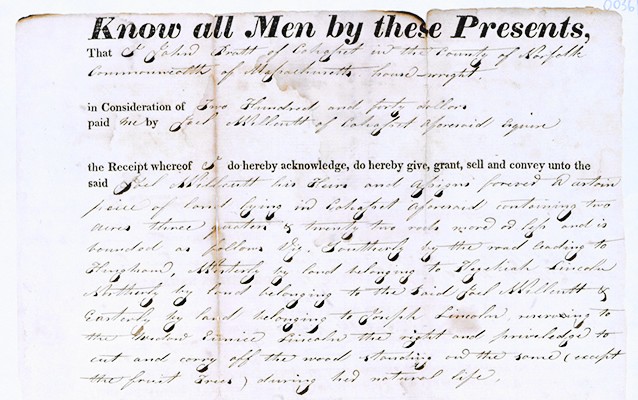 0056
Know all Men by these Presents,
That I John Pratt of Cohasset in the County of Norfolk
Commonwealth of Massachusetts house wright
in Consideration of Two Hundred and forty dollars
paid me by Joel Willcutt of Cohasset aforesaid Esquire
the Receipt whereof I do hereby acknowledge, do hereby give, grant, sell and convey unto the
said Joel Willcutt his Heirs and Assigns forever A certain
piece of land lying in Cohasset aforesaid containing two
acres three quarters & twenty two rods more or less and is
bounded as follows Viz. Southerly by the road leading to
Hingham, Westerly by land belonging to Hezekiah Lincoln
Northerly by land belonging to the said Joel Willcutt &
Easterly by land belonging to Joseph Lincoln reserving to
the Widow Eunice Lincoln the right and priviledge to
cut and carry off the wood standing on the same (except
the fruit Trees) during her natural life.